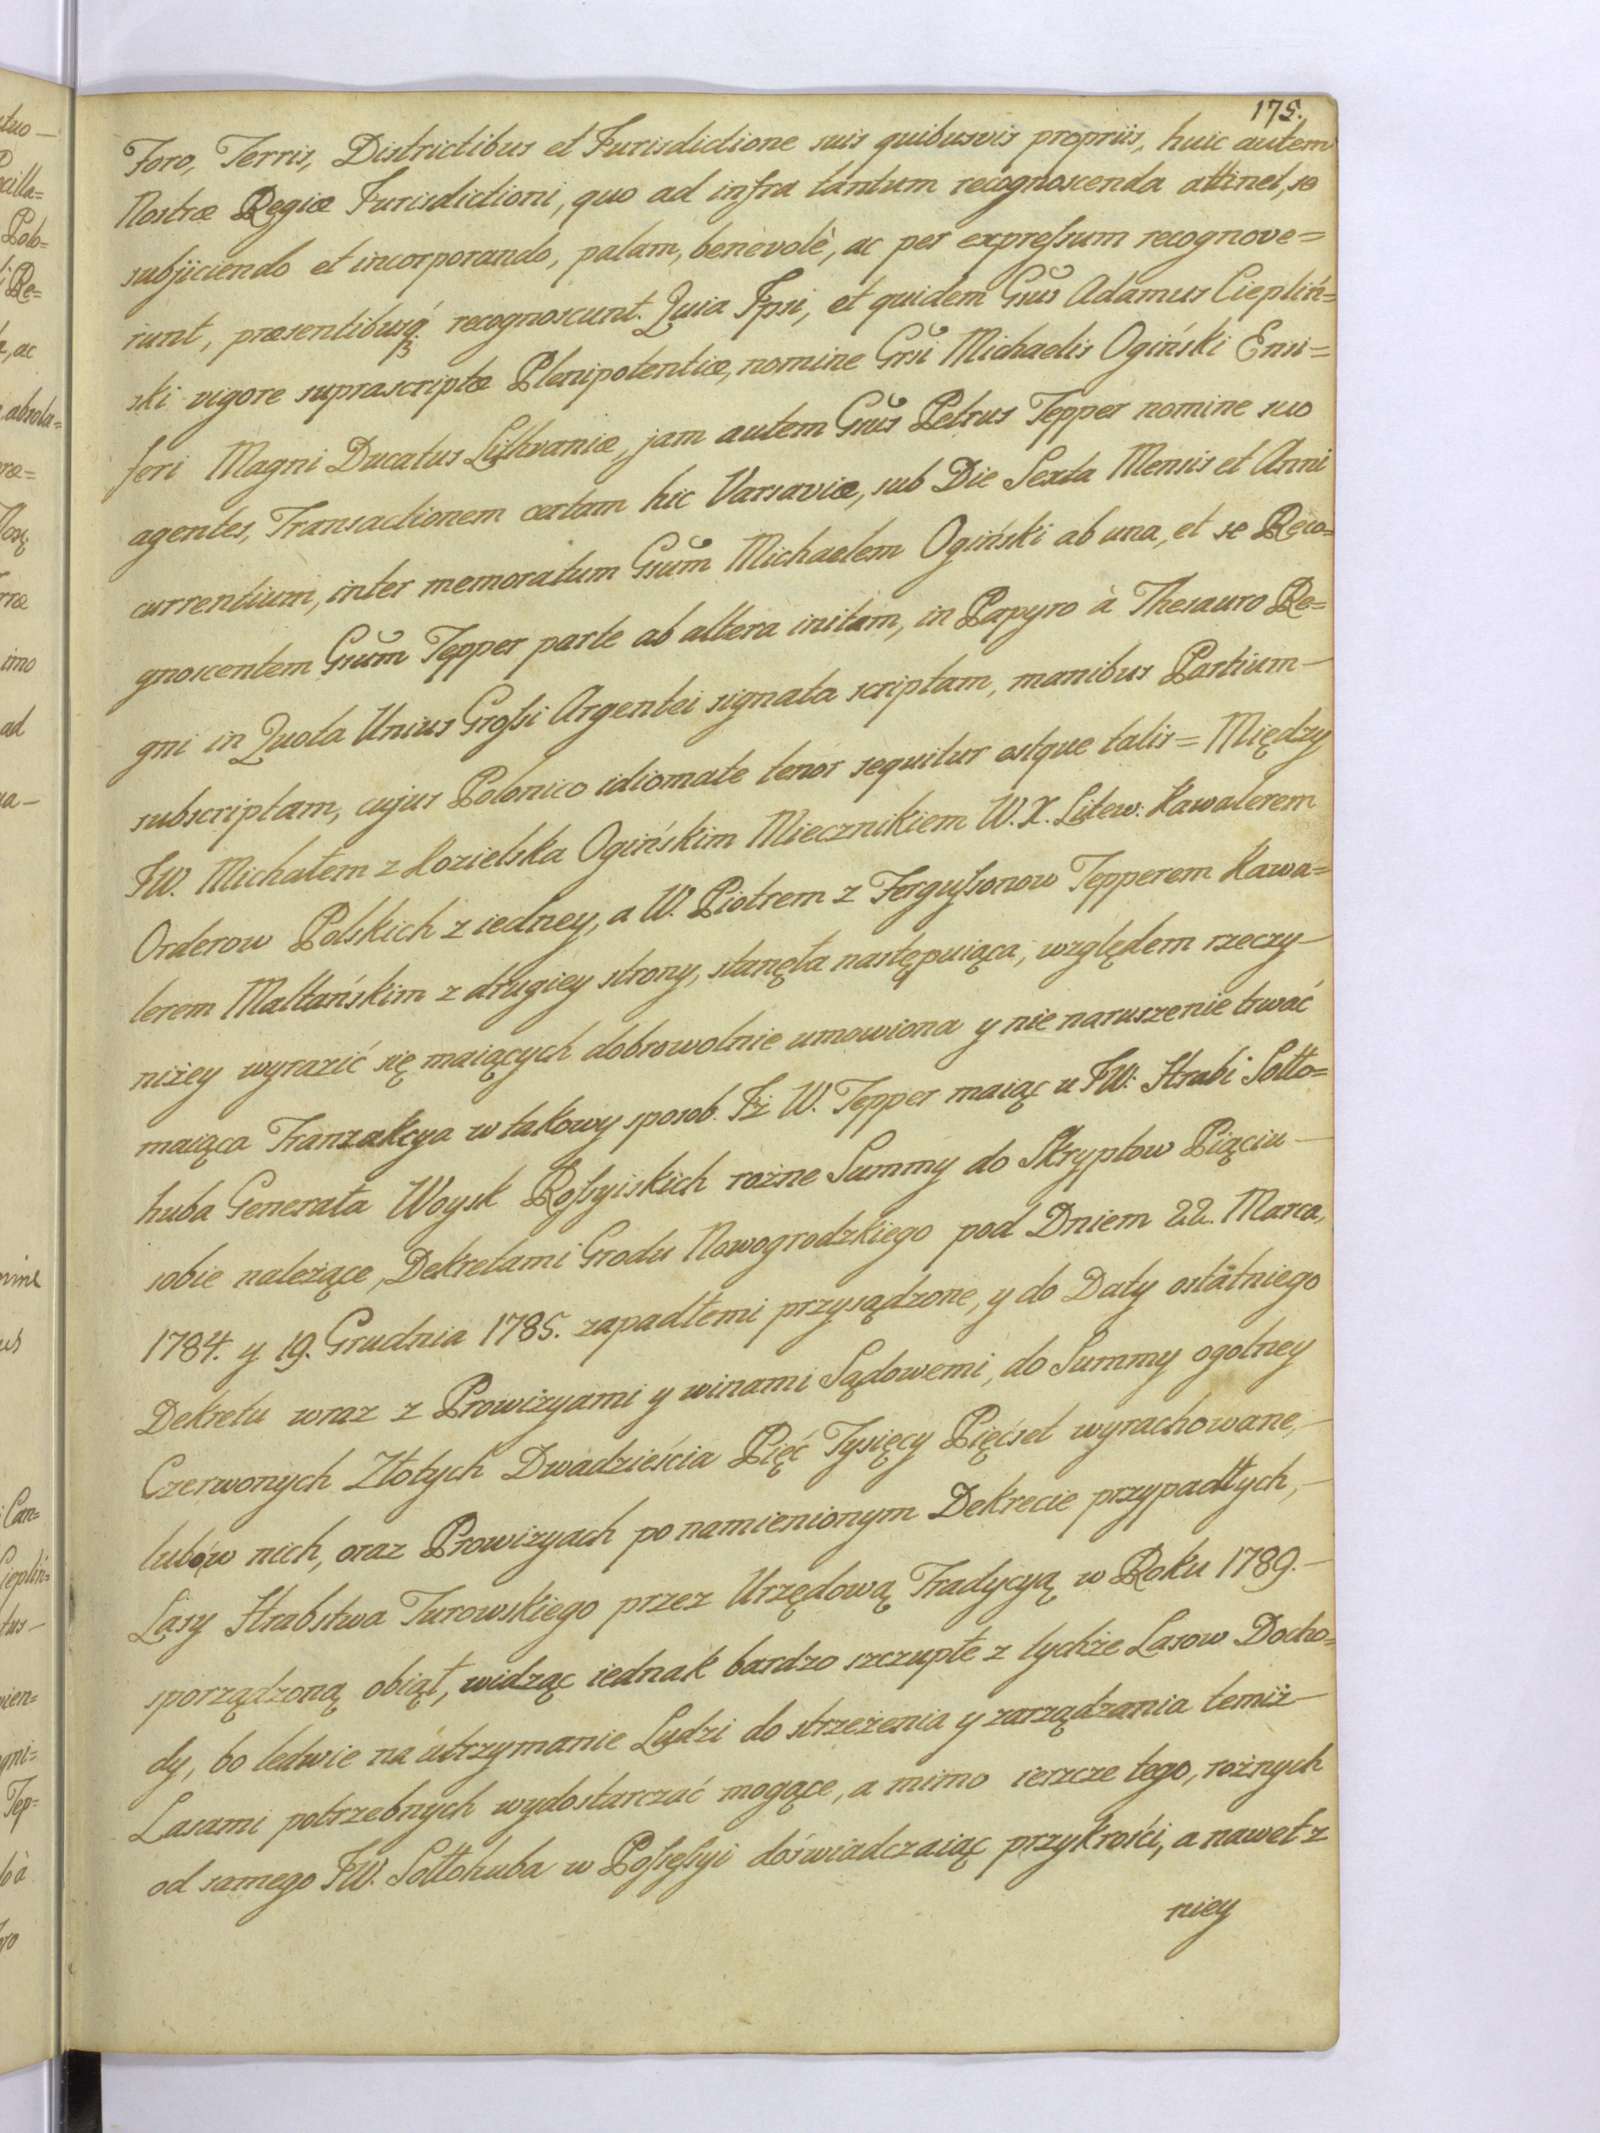 175.
Foro, Terris, Districtibus et Jurisdictione suis quibusvis propriis, huic autem
Nostræ Regiæ Jurisdictioni, quo ad infra tantum recognoscenda attinet, se
subjiciendo et incorporando, palam, benevolè, ac per expreſsum recognove=
runt, præsentibusq́ recognoscunt. Quia Ipsi, et quidem Gsus Adamus Ciepliń=
ski vigore suprascriptæ Plenipotentiæ, nomine Gsi Michaelis Ogiński Ensi=
feri Magni Ducatus Lithvaniæ, jam autem Gsus Petrus Tepper nomine suo
agentes, Transactionem certam hic Varsaviæ, sub Die Sexta Mensis et Anni
currentium, inter memoratum Gsum Michaelem Ogiński ab una, et se Reco=
gnoscentem Gsum Tepper parte ab altera initam, in Papyro à Thesauro Re=
gni in Quota Unius Groſsi Argentei signata scriptam, manibus Partium
subscriptam, cujus Polonico idiomate tenor sequitur estque talis = Między
JW. Michałem z Kozielska Ogińskim Miecznikiem W. X. Litew: Kawalerem
Orderow Polskich z iedney, a W. Piotrem z Ferguſsonow Tepperem Kawa=
lerem Maltańskim z drugiey strony, stanęła następuiąca, względem rzeczy
niżey wyrazić się maiących dobrowolnie umowiona y nie naruszenie trwać
maiąca Tranzakcya w takowy sposob. Iż W. Tepper maiąc u JW. Hrabi Sołło=
huba Generała Woysk Roſsyiskich rożne Summy do Skryptow Pięciu
sobie należące, Dekretami Grodu Nowogrodzkiego pod Dniem 22. Marca,
1784. y 19. Grudnia 1785. zapadłemi przysądzone, y do Daty ostatniego
Dekretu wraz z Prowizyami y winami Sądowemi, do Summy ogolney
Czerwonych Złotych Dwadzieścia Pięć Tysięcy Pięćset wyrachowane,
lubo w nich, oraz Prowizyach po namienionym Dekrecie przypadłych,
Lasy Hrabstwa Turowskiego przez Urzędową Tradycyą w Roku 1789.
sporządzoną obiął, widząc iednak bardzo szczupłe z tychże Lasow Docho=
dy, bo ledwie na utrzymanie Ludzi do strzeżenia y zarządzania temiż
Lasami potrzebnych wydostarczać mogące, a mimo ieszcze tego, rożnych
od samego JW. Sołłohuba w Poſseſsyi doświadczaiąc przykrości, a nawet z
niey